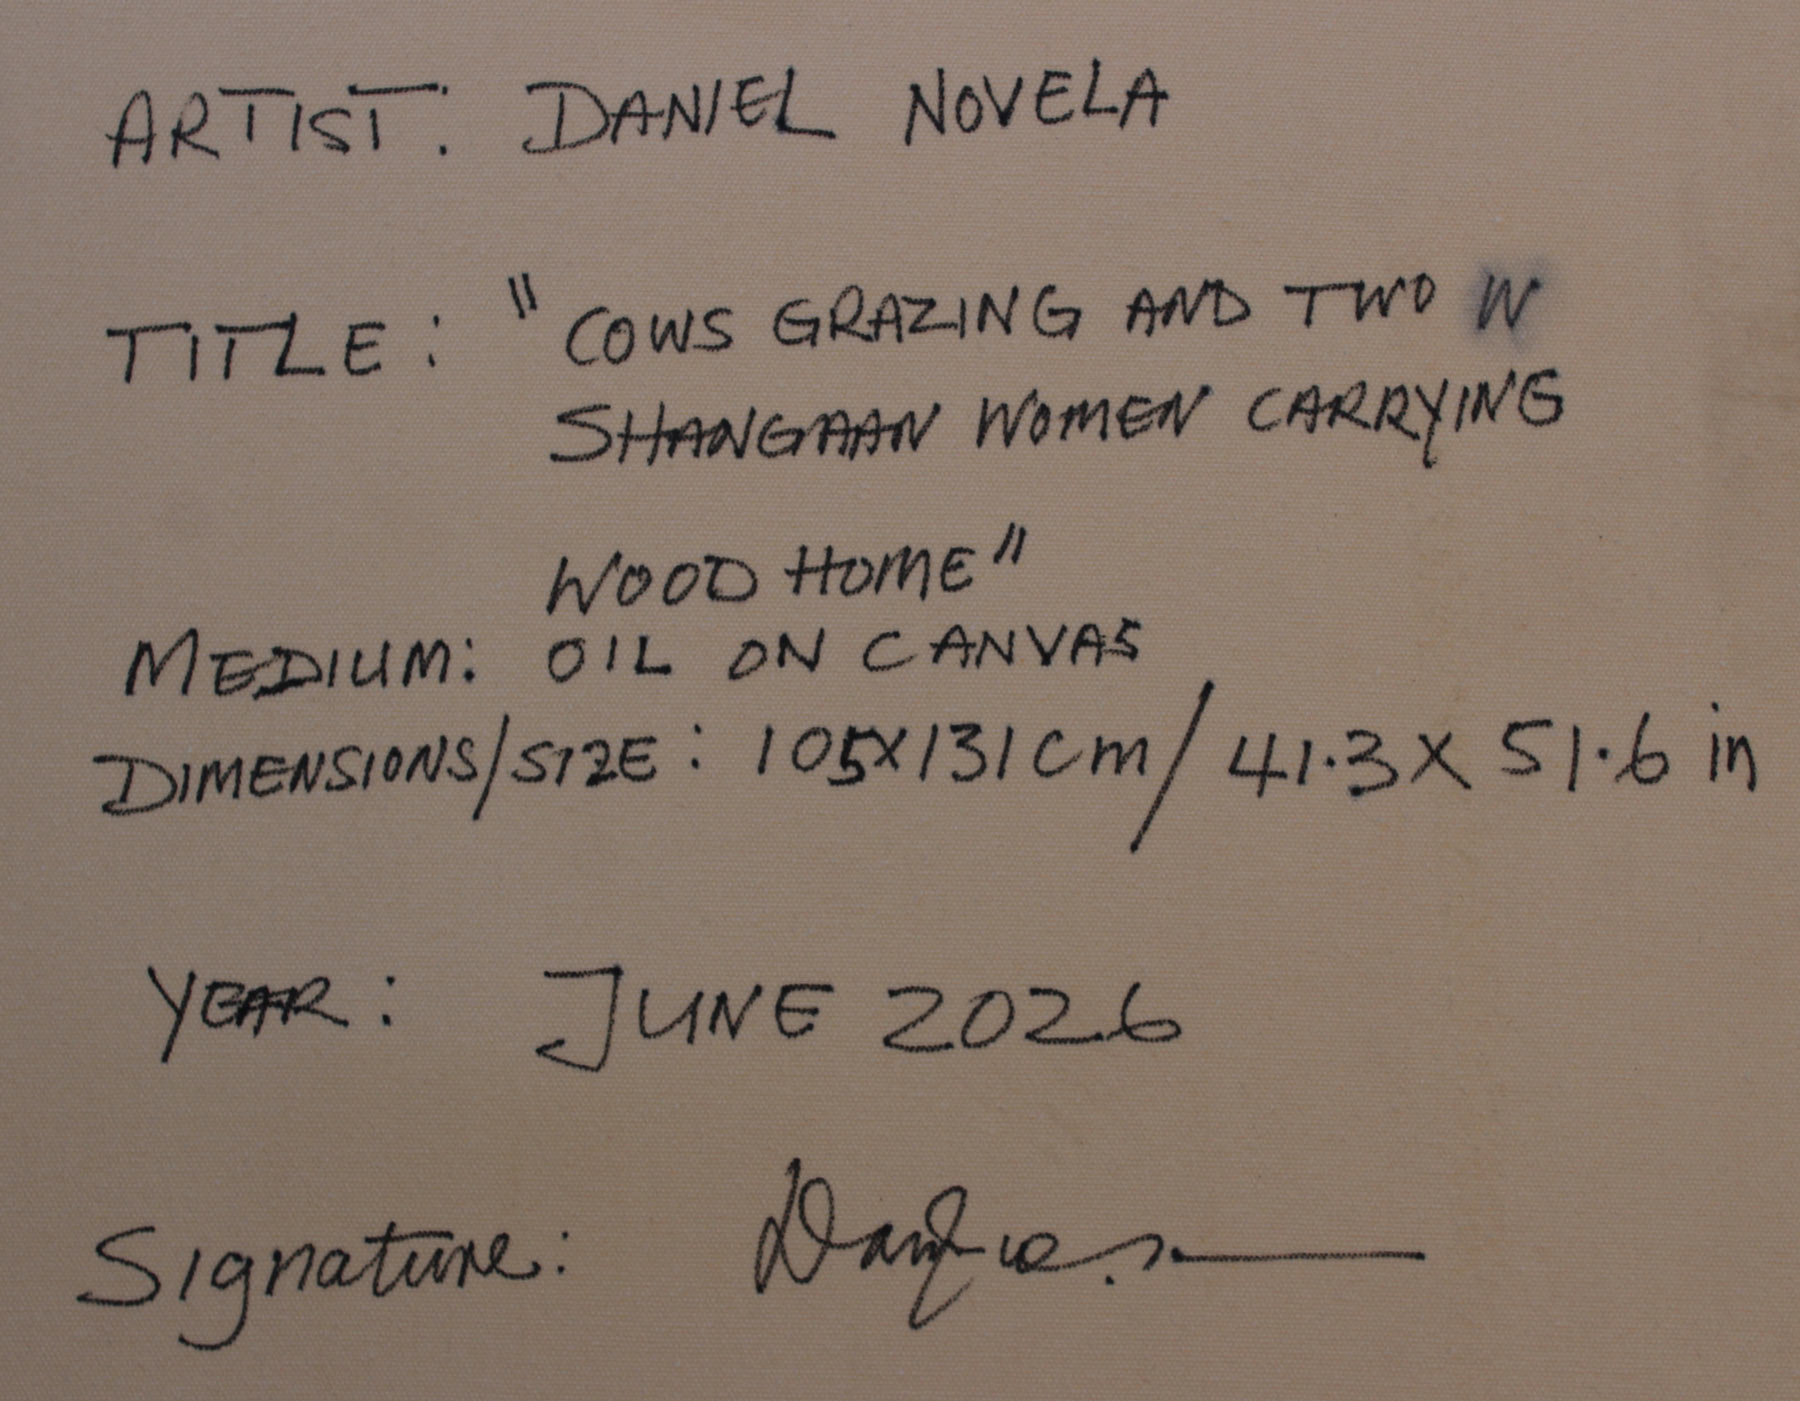 ARTIST: DANIEL NOVELA
TITLE: "COWS GRAZING AND TWO W
SHANGAAN WOMEN CARRYING
WOOD HOME"
MEDIUM: OIL ON CANVAS
DIMENSIONS/SIZE: 105X131cm/41.3X51.6 in
YEAR: JUNE 2026
Signature: